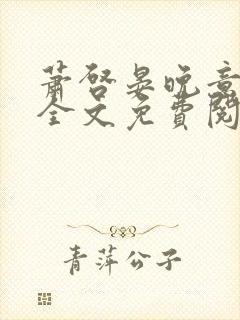 萧啓晏晚意
全文免费阅
青萍公子